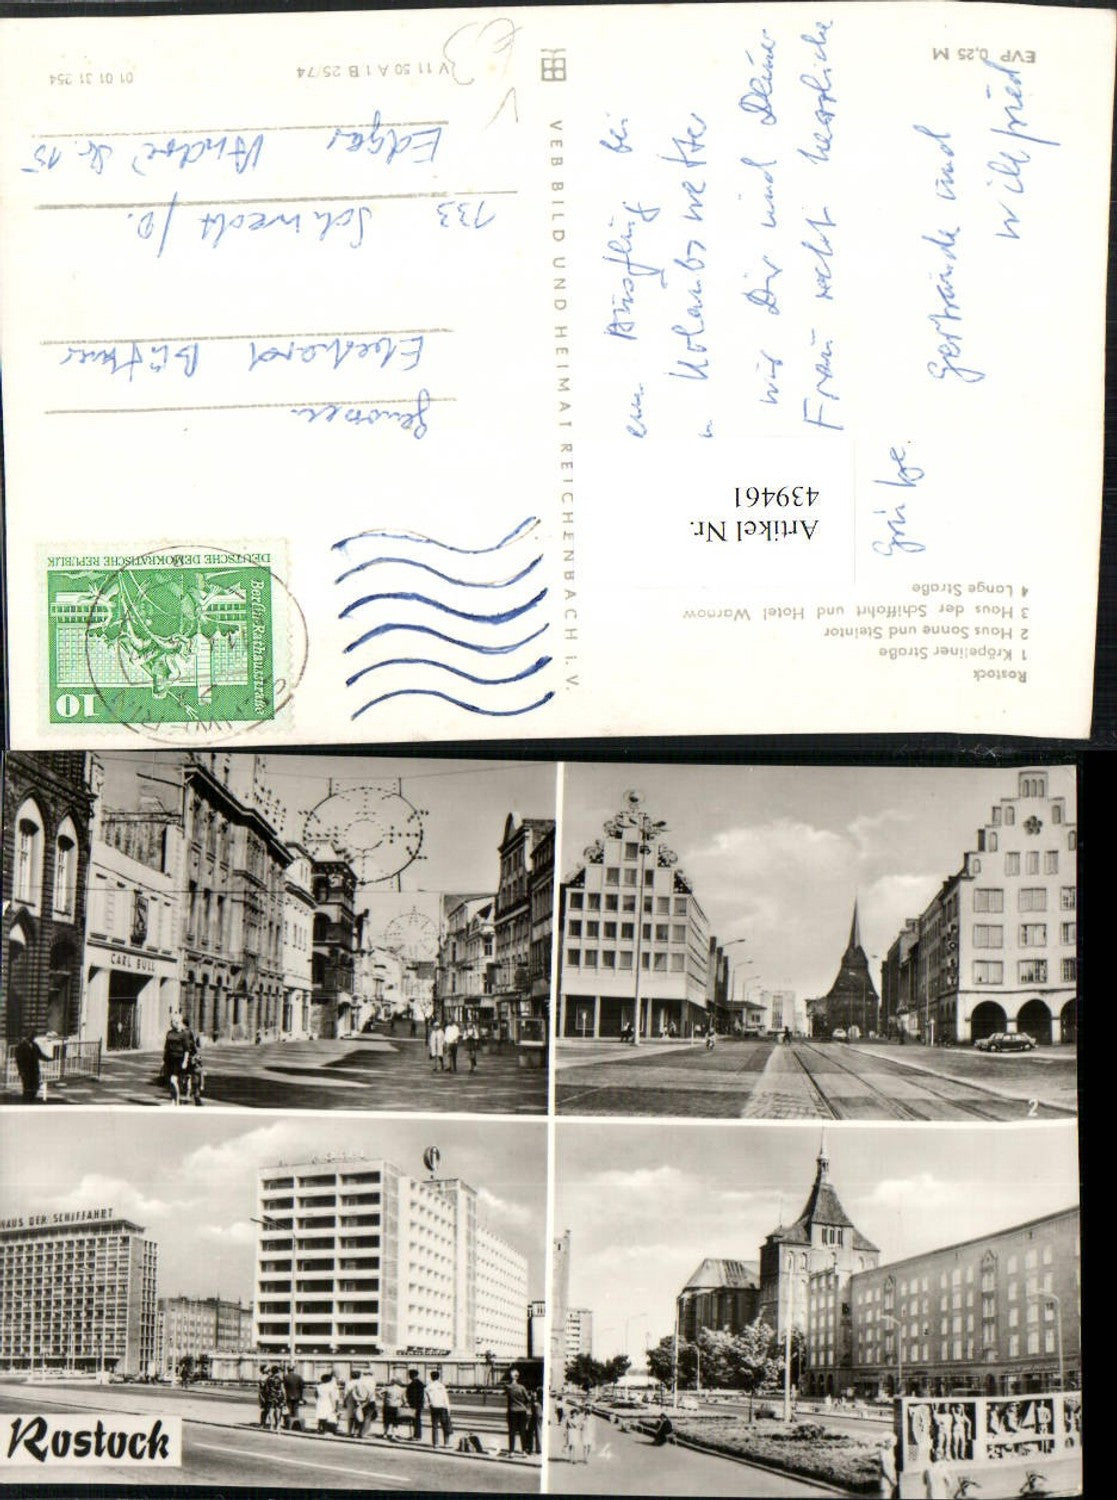 EVP 0,25 M
V 11 50 A 1 B 25/74
01 01 31 254
VEB BILD UND HEIMAT REICHENBACH i. V.
Rostock
1 Kröpeliner Straße
2 Haus Sonne und Steintor
3 Haus der Schiffahrt und Hotel Warnow
4 Lange Straße
Artikel Nr.
439461
Ausflug bei
wir Dir und Deiner
Frau recht herzliche
Grüße.
Gertraude und
Willfried
Genossen
Eberhard Büttner
133 Schwedt/O.
Edgar André Str. 15
10
Berlin, Rathausstraße
DEUTSCHE DEMOKRATISCHE REPUBLIK
CARL BULL
2
HAUS DER SCHIFFAHRT
4
Rostock